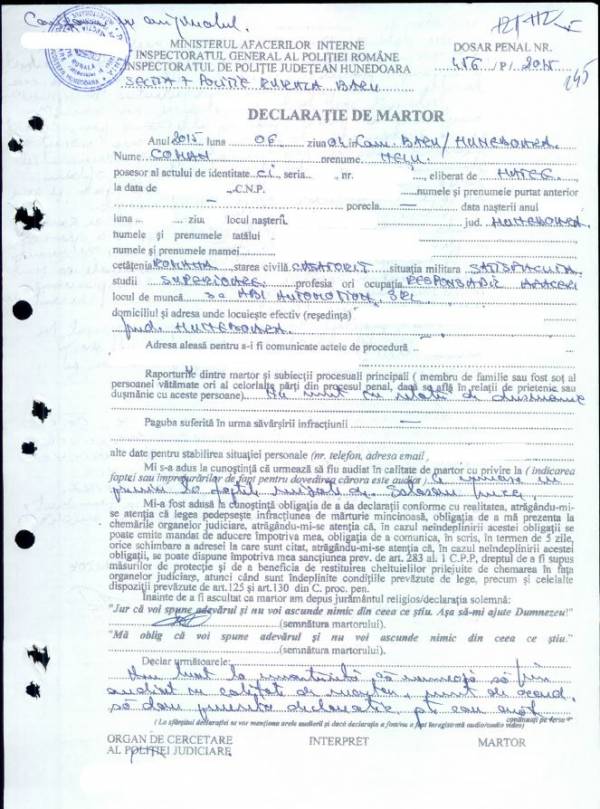 Conform cu originalul.
MINISTERUL AFACERILOR INTERNE
INSPECTORATUL GENERAL AL POLIŢIEI ROMÂNE
INSPECTORATUL DE POLIŢIE JUDEŢEAN HUNEDOARA
SECŢIA 7 POLIŢIE RURALĂ BARU
DOSAR PENAL NR.
456/P/2015
245
DECLARAŢIE DE MARTOR
Anul 2015 luna 06 ziua Com. BARU/HUNEDOARA
Nume COMAN prenume
posesor al actului de identitate C.I., seria nr. , eliberat de HAŢEG
la data de – C.N.P. numele şi prenumele purtat anterior
– porecla — data naşterii anul
luna ziu locul naşterii. jud. HUNEDOARA
numele şi prenumele tatălui
numele şi prenumele mamei
cetăţenia ROMÂNA starea civilă CĂSĂTORIT situaţia militara SATISFĂCUTĂ
studii SUPERIOARE profesia ori ocupaţia RESPONSABIL AFACERI
locul de muncă AUTOMOTION SRL
domiciliul şi adresa unde locuieşte efectiv (reşedinţa)
jud. HUNEDOARA
Adresa aleasă pentru a-i fi comunicate actele de procedură
Raporturile dintre martor şi subiecţii procesuali principali ( membru de familie sau fost soţ al
persoanei vătămate ori al celorlalte părţi din procesul penal, dacă se află în relaţii de prietenie sau
duşmănie cu aceste persoane) Nu sunt în relaţii de duşmănie
Paguba suferită în urma săvârşirii infracţiunii —
alte date pentru stabilirea situaţiei personale (nr. telefon, adresa email ,
Mi s-a adus la cunoştinţă că urmează să fiu audiat în calitate de martor cu privire la ( indicarea
faptei sau împrejurărilor de fapt pentru dovedirea cărora este audiat )
Mi-a fost adusă la cunoştinţă obligaţia de a da declaraţii conforme cu realitatea, atrăgându-mi-
se atenţia că legea pedepseşte infracţiunea de mărturie mincinoasă, obligaţia de a mă prezenta la
chemările organelor judiciare, atrăgându-mi-se atenţia că, în cazul neîndeplinirii acestei obligaţii se
poate emite mandat de aducere împotriva mea, obligaţia de a comunica, în scris, în termen de 5 zile,
orice schimbare a adresei la care sunt citat, atrăgându-mi-se atenţia că, în cazul neîndeplinirii acestei
obligaţii, se poate dispune împotriva mea sancţiunea prev. de art. 283 al. 1 C.P.P, dreptul de a fi supus
măsurilor de protecţie şi de a beneficia de restituirea cheltuielilor prilejuite de chemarea în faţa
organelor judiciare, atunci când sunt îndeplinite condiţiile prevăzute de lege, precum şi celelalte
dispoziţii prevăzute de art.125 şi art.130 din C. proc. pen.
Înainte de a fi ascultat ca martor am depus jurământul religios/declaraţia solemnă:
"Jur că voi spune adevărul şi nu voi ascunde nimic din ceea ce ştiu. Aşa să-mi ajute Dumnezeu!"
(semnătura martorului).
"Mă oblig că voi spune adevărul şi nu voi ascunde nimic din ceea ce ştiu."
(semnătura martorului).
Declar următoarele:
Am luat la cunoştinţă că urmează să fiu
audiat în calitate de martor, sunt de acord
să dau prezenta declaraţie
continuaţi pe verso
( La sfârşitul declaraţiei se vor menţiona orele audierii şi dacă declaraţia a fost/nu a fost înregistrată audio/audio video)
ORGAN DE CERCETARE INTERPRET MARTOR
AL POLIŢIEI JUDICIARE